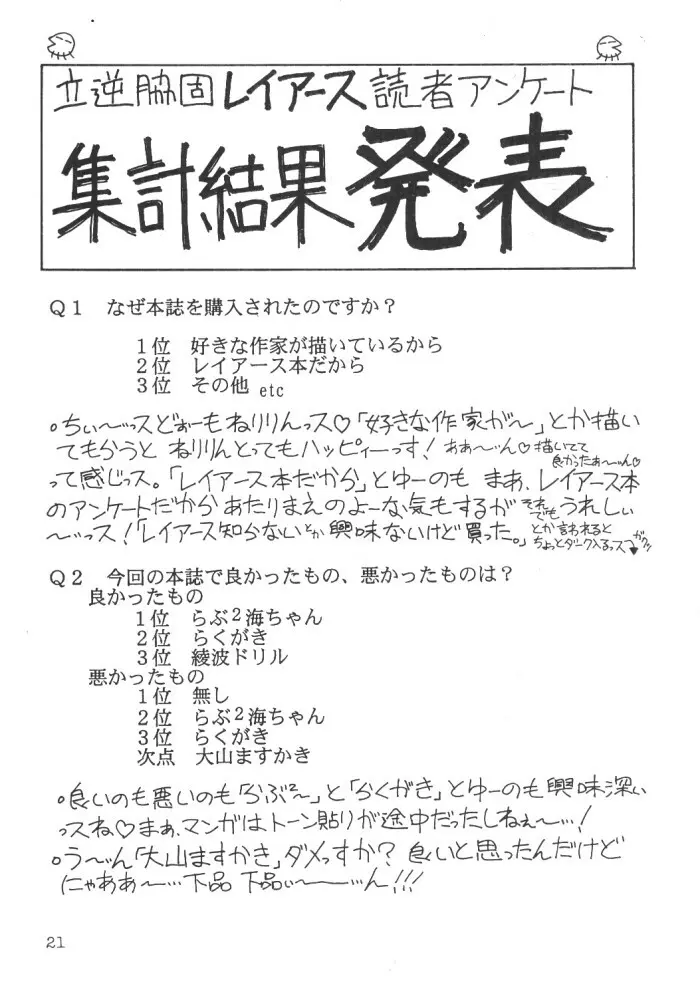 立逆脇固レイアース読者アンケート
集計結果発表
Q1 なぜ本誌を購入されたのですか?
1位 好きな作家が描いているから
2位 レイアース本だから
3位 その他 etc
○ちぃ~~ッスどぉーもねりりんっス♡「好きな作家が~」とか描い
てもらうと ねりりんとってもハッピィーっす! あぁ~ん♡描いてて
良かったぁ~ん♡
って感じっス。「レイアース本だから」とゆーのも まぁ、レイアース本
のアンケートだから あたりまえのよーな気もするが それでもうれしぃ
~~ッス!「レイアース知らないとか興味ないけど買った。」とか言われると
ちょっとダーク入るっス
Q2 今回の本誌で良かったもの、悪かったものは?
良かったもの
1位 らぶ2海ちゃん
2位 らくがき
3位 綾波ドリル
悪かったもの
1位 無し
2位 らぶ2海ちゃん
3位 らくがき
次点 大山ますかき
○良いのも悪いのも「らぶ2~」と「らくがき」とゆーのも興味深い
ッスね♡まぁ、マンガはトーン貼りが途中だったしねぇ~…!
○う~ん「大山ますかき」ダメっすか? 良いと思ったんだけど
にゃぁあ~…下品 下品ぃ~…ん!!!
21